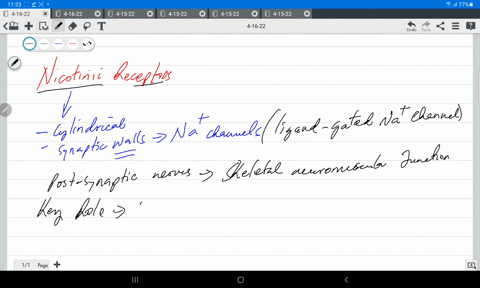 11:23 77%
4-16-22 4-15-22 4-15-22 4-15-22 4-15-22
4-16-22 Undo Redo
Nicotinic Receptors
- Cylindrical
- Synaptic walls → Na+ channels (ligand-gated Na+ channel)
Post-synaptic nerves → Skeletal neuromuscular Junction
Key Role →
1/1 Page